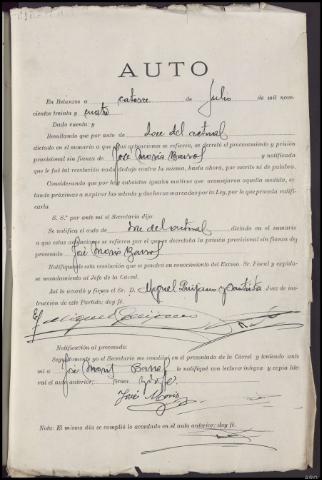 AUTO
En Betanzos a catorce de Julio de mil nove-
cientos treinta y cuatro
Dada cuenta; y
Resultando que por auto de doce del actual
dictado en el sumario a que estas actuaciones se refieren, se decretó el procesamiento y prisión
provisional sin fianza de José María y notificada
que le fué tal resolución nada dedujo contra la misma, hasta ahora, por escrito ni de palabra.
Considerando que por subsistir iguales motivos que aconsejaron aquella medida, es-
tando próximas a expirar las setenta y dos horas marcadas por la Ley, procede ratifi-
carla.
S. S.ª por ante mí el Secretario dijo:
Se ratifica el auto de doce del actual dictado en el sumario
a que estas actuaciones se refieren por el que se decretaba la prisión provisional sin fianza del
procesado José María
Notifíquese esta resolución que se pondrá en conocimiento del Excmo. Sr. Fiscal y expída-
se mandamiento al Jefe de la Cárcel.
Así lo acordó y firma el Sr. D. Miguel Juez de ins-
trucción de este Partido; doy fe.
Notificación al procesado:
Seguidamente yo el Secretario me constituí en la Cárcel y teniendo ante
mí a José María le notifiqué con lectura íntegra y copia lite-
ral el auto anterior; firma doy fe.
José María
Nota: El mismo día se cumplió lo acordado en el auto anterior; doy fe.